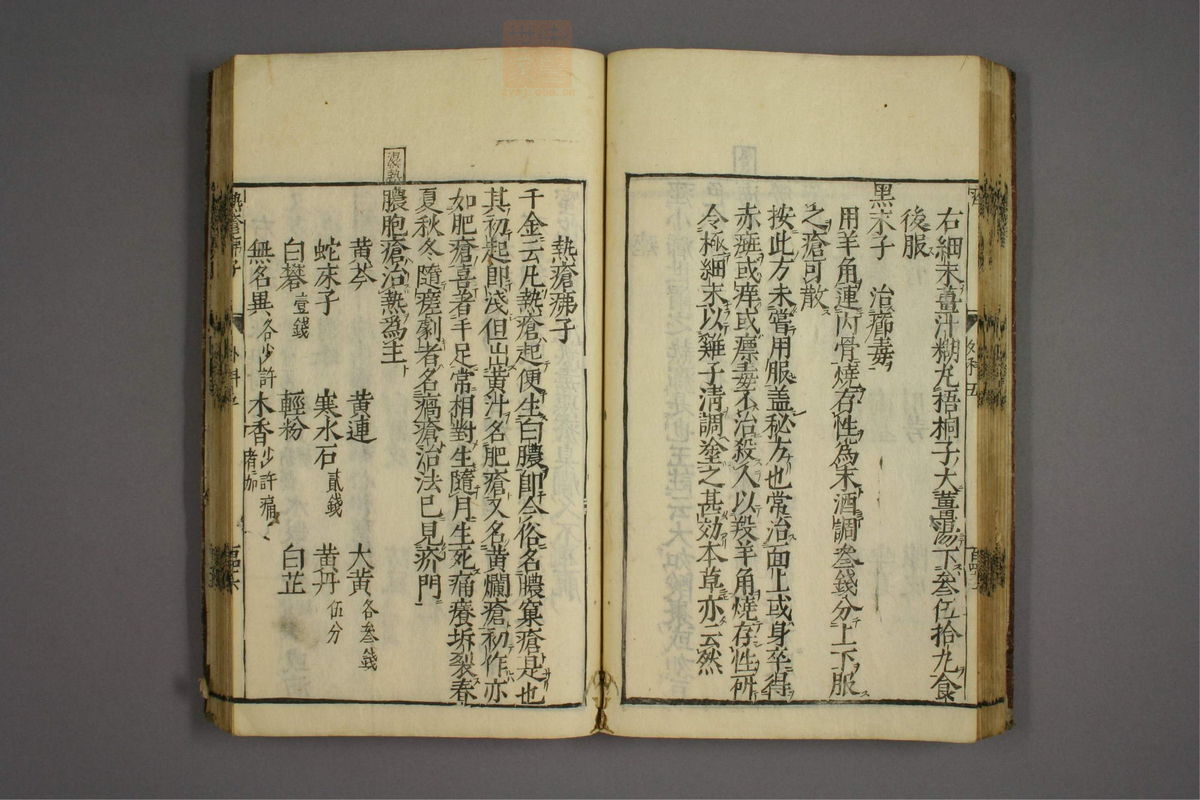 右細末薑汁糊丸梧桐子大薑湯下叄伍拾丸食
後服
黑末子　治癤毒
用羊角連內骨燒存性爲末酒調叄錢分上下服
之瘡可散
按此方未嘗用服盖秘方也常治面上或身卒得
赤斑或痒或瘭毒不治殺人以羖羊角燒存性研
令極細末以雞子淸調塗之甚効本草亦云然
熱瘡疿子
千金云凡熱瘡起便生白膿卽今俗名膿窠瘡是也
其初起卽淺但出黃汁名肥瘡又名黃爛瘡初作亦
如肥瘡喜著手足常相對生隨月生死痛癢坼裂春
夏秋冬隨瘥劇者名瘑瘡治法已見疥門
膿胞瘡治熱爲主
黃芩　黃連　大黃各叄錢
蛇床子　寒水石貳錢　黃丹伍分
白礬壹錢　輕粉　白芷
無名異各少許　木香少許痛者加